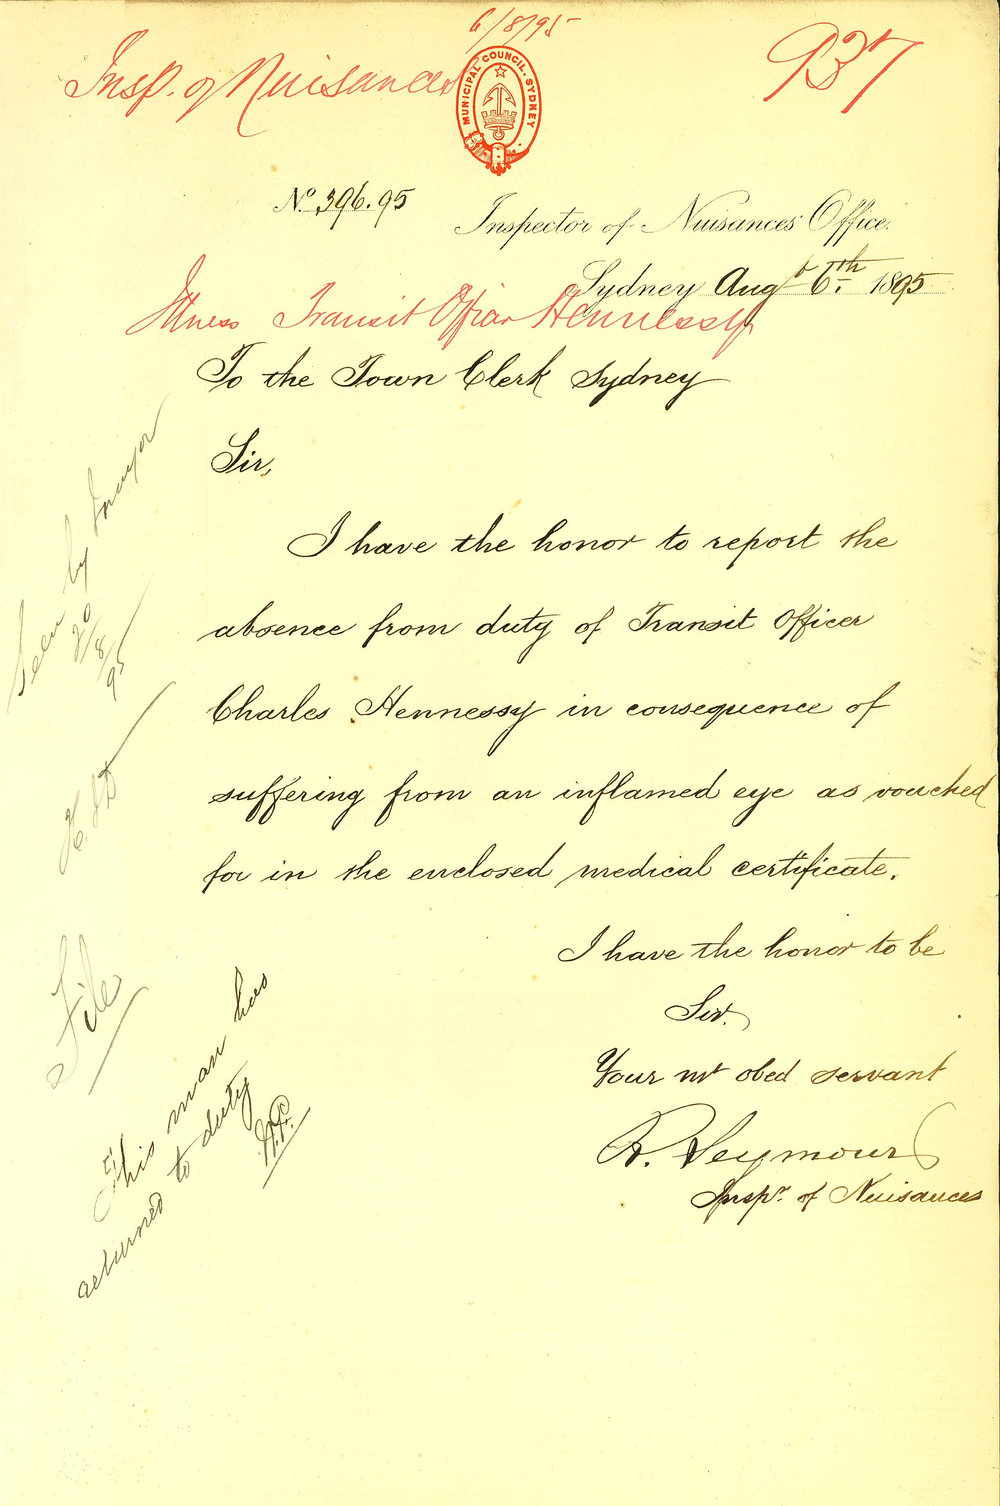 6/8/95
Insp. of Nuisances
937
MUNICIPAL COUNCIL. SYDNEY
No. 396.95
Inspector of Nuisances' Office.
Sydney Augt 6th. 1895
Illness Transit Officer Hennessy
To the Town Clerk Sydney
Sir,
I have the honor to report the
absence from duty of Transit Officer
Charles Hennessy in consequence of
suffering from an inflamed eye as vouched
for in the enclosed medical certificate.
I have the honor to be
Sir.
Your mt obed servant
R. Seymour
Inspr. of Nuisances
Seen by Mayor
20/8/95
File
This man has
returned to duty